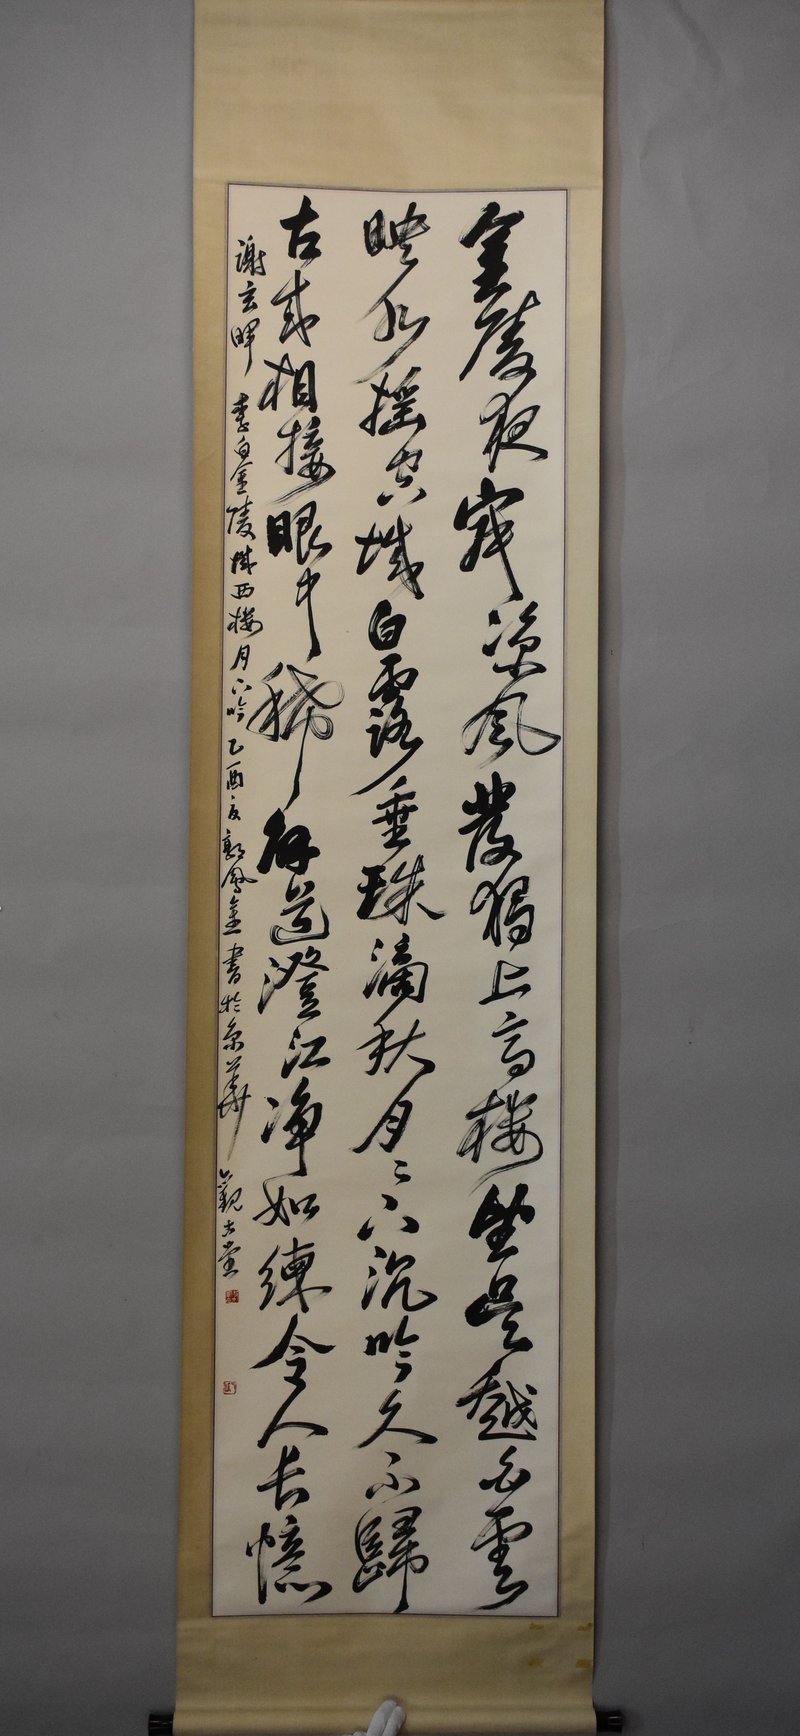 金陵夜寂涼風發獨上高樓望吳越白雲
映水摇空城白露垂珠滴秋月月下沉吟久不歸
古來相接眼中稀解道澄江净如練令人長憶
謝玄暉 李白金陵城西樓月下吟 乙酉夏 郭鳳金書於京華 觀古堂